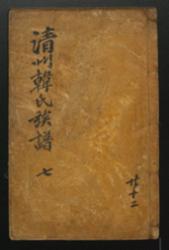 清州韓氏族譜 七
共十二